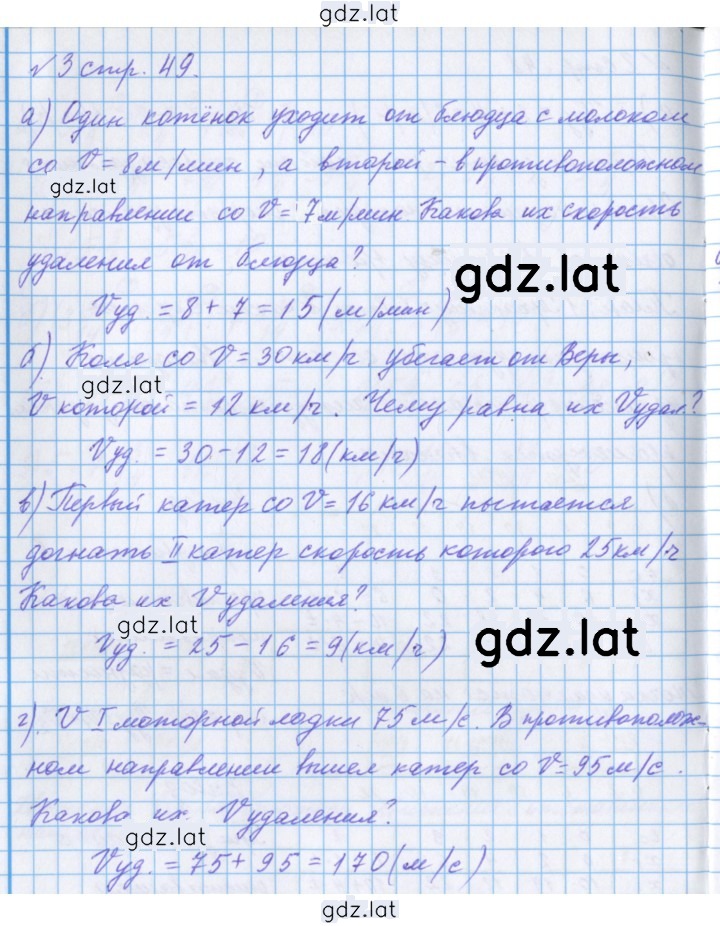 gdz.lat
№3 стр. 49.
а) Один котёнок уходит от блюдца с молоком
со V = 8 м/мин, а второй - в противоположном
gdz.lat
направлении со V = 7 м/мин. Какова их скорость
удаления от блюдца?
gdz.lat
Vуд. = 8 + 7 = 15 (м/мин)
б) Коля со V = 30 км/ч убегает от Веры,
gdz.lat
V которой = 12 км/ч. Чему равна их Vудал?
Vуд. = 30 - 12 = 18 (км/ч)
в) Первый катер со V = 16 км/ч пытается
догнать II катер скорость которого 25 км/ч
Какова их Vудаления?
gdz.lat
Vуд. = 25 - 16 = 9 (км/ч)
gdz.lat
г). V I моторной лодки 75 м/с. В противополож-
ном направлении вышел катер со V = 95 м/с.
Какова их Vудаления?
gdz.lat
Vуд. = 75 + 95 = 170 (м/с)
gdz.lat